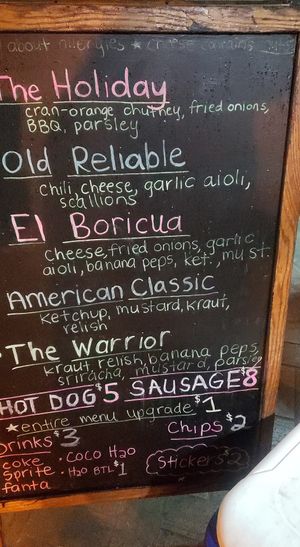 about allergies ★ cheese contains
The Holiday
cran-orange chutney, fried onions,
BBQ, parsley
Old Reliable
chili, cheese, garlic aioli,
scallions
El Boricua
cheese, fried onions, garlic
aioli, banana peps, ket., must.
American Classic
ketchup, mustard, kraut,
relish
The Warrior
kraut, relish, banana peps,
sriracha, mustard, parsley
HOT DOG $5 SAUSAGE $8
★entire menu upgrade $1
Drinks $3 Chips $2
coke • COCO H2O
sprite • H2O BTL $1 Stickers $2
fanta